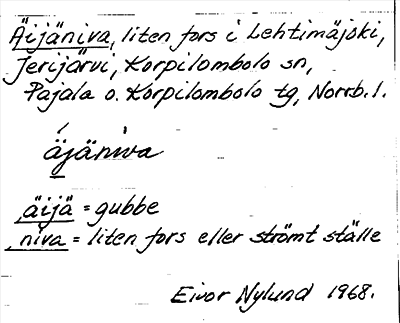 Äijäniva, liten fors i Lehtimäjoki,
Jerijärvi, Korpilombolo sn,
Pajala o. Korpilombolo tg, Norrb. l.
äjäniva
äijä = gubbe
niva = liten fors eller strömt ställe
Eivor Nylund 1968.